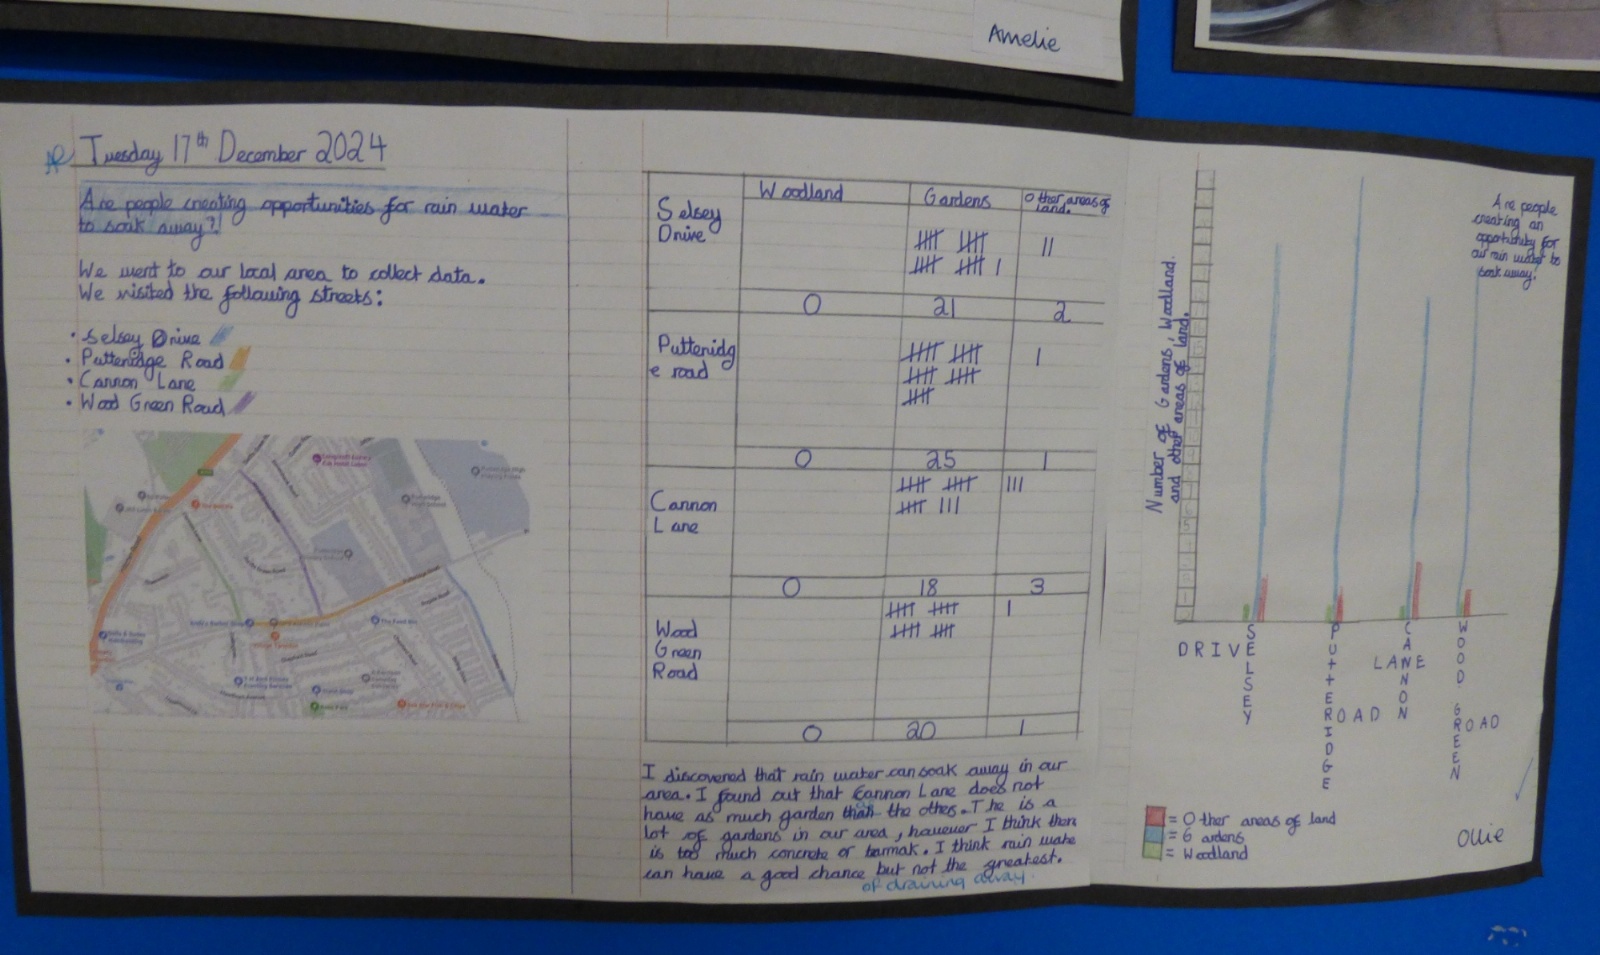 Amelie
Tuesday 17th December 2024
Are people creating opportunities for rain water
to soak away?!
We went to our local area to collect data.
We visited the following streets:
• Selsey Drive
• Putteridge Road
• Cannon Lane
• Wood Green Road
Woodland Gardens Other areas of
land.
Selsey
Drive
0 21 2
Putteridg
e road
0 25 1
Cannon
Lane
0 18 3
Wood
Green
Road
0 20 1
I discovered that rain water can soak away in our
area. I found out that Cannon Lane does not
have as much garden than the othes. The is a
lot of gardens in our area, however I think there
is too much concrete or tarmak. I think rain wate
can have a good chance but not the greatest.
of draining away.
Number of Gardens, Woodland.
and other areas of land.
Are people
creating an
opportunity for
our rain water to
soak away!
SELSEY
DRIVE
PUTTERIDGE
ROAD
CANNON
LANE
WOOD GREEN
ROAD
= Other areas of land
= Gardens
= Woodland
Ollie